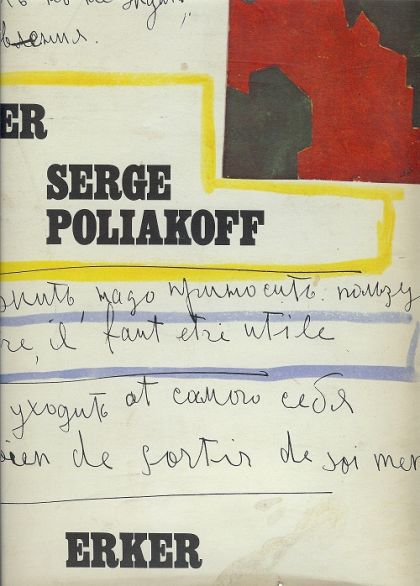 вления.
ER
SERGE
POLIAKOFF
жить, надо приносить пользу
re, il faut etre utile
уходить at самого себя
bien de sortir de soi mem
ERKER